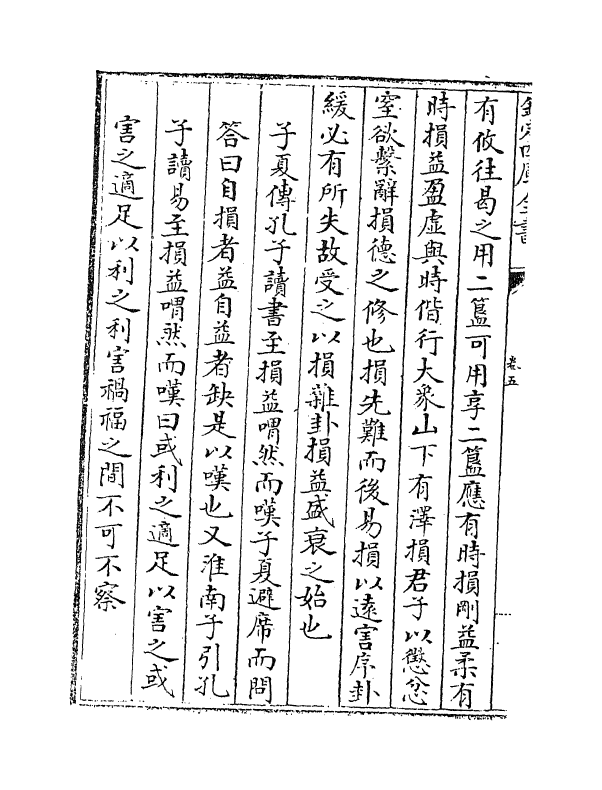 欽定四庫全書
卷五
有攸往曷之用二簋可用享二簋應有時損剛益柔有
時損益盈虛與時偕行大象山下有澤損君子以懲忿
窒欲繫辭損德之修也損先難而後易損以遠害序卦
緩必有所失故受之以損雜卦損益盛衰之始也
子夏傳孔子讀書至損益喟然而嘆子夏避席而問
答曰自損者益自益者缺是以嘆也又淮南子引孔
子讀易至損益喟然而嘆曰或利之適足以害之或
害之適足以利之利害禍福之間不可不察